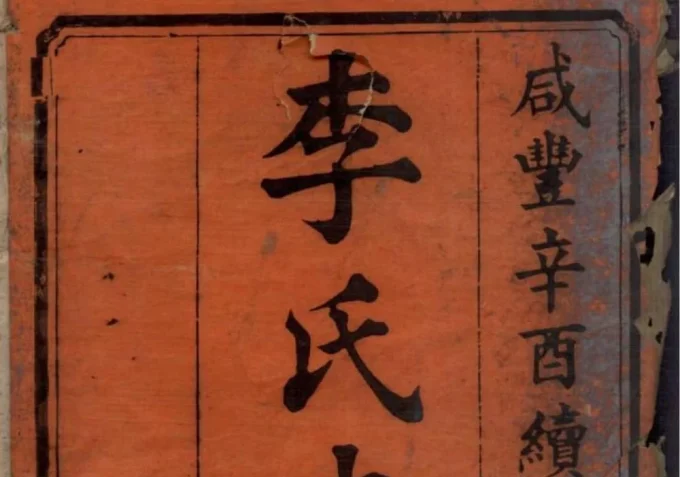 咸豐辛酉續
李氏